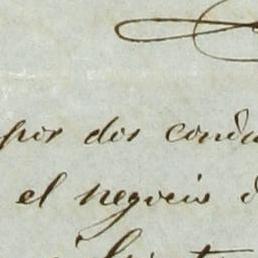 por dos condu
el negocio d